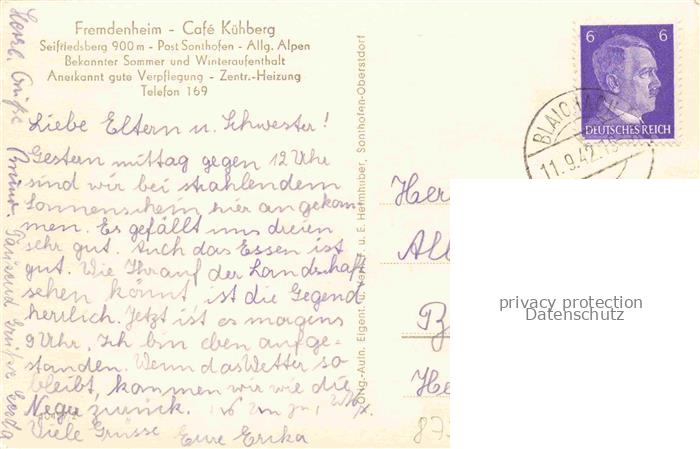 Fremdenheim - Café Kühberg
Seifriedsberg 900 m - Post Sonthofen - Allg. Alpen
Bekannter Sommer und Winteraufenthalt
Anerkannt gute Verpflegung - Zentr.-Heizung
Telefon 169
Liebe Eltern u. Schwester!
Gestern mittag gegen 12 Uhr
sind wir bei strahlendem
Sonnenschein hier angekom-
men. Es gefällt uns dreien
sehr gut. Auch das Essen ist
gut. Wie Ihr auf der Landschaft
sehen könnt ist die Gegend
herrlich. Jetzt ist es morgens
9 Uhr. Ich bin eben aufge-
standen. Wenn das Wetter so
bleibt, kommen wir wie die
Neger zurück.
Viele Grüsse Eure Erika
Herzl. Grüße
Tausend Grüße
Sonthofen-Oberstdorf
6 6
DEUTSCHES REICH
BLAICHACH
11.9.42
Her
All
B
He
87
privacy protection
Datenschutz